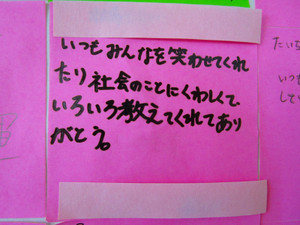 いつもみんなを笑わせてくれ
たり社会のことにくわしくて、
いろいろ教えてくれてあり
がとう。
たいち
いつも
して